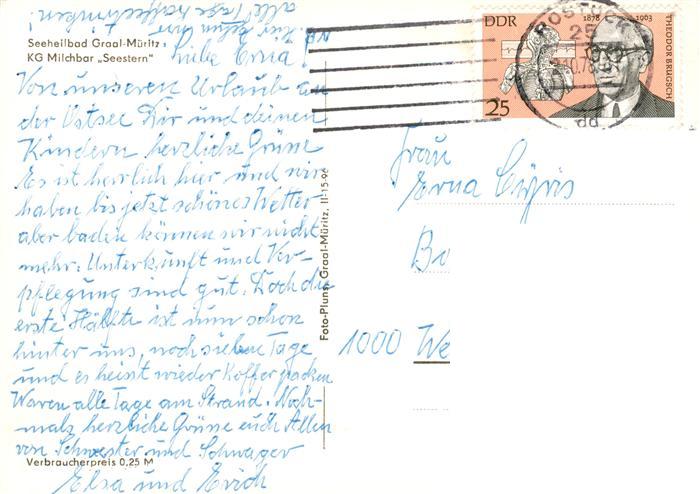 Seeheilbad Graal-Müritz
KG Milchbar „Seestern"
Liebe Erna!
Von unseren Urlaub an
der Ostsee Dir und deinen
Kindern herzliche Grüsse
Es ist herrlich hier und wir
haben bis jetzt schönes Wetter
aber baden können wir nicht
mehr. Unterkunft und Ver-
pflegung sind gut. Doch die
erste Hälfte ist nun schon
hinter uns, noch sieben Tage
und es heisst wieder Koffer packen
Waren alle Tage am Strand. Noch-
mals herzliche Grüsse euch Allen
von Schwester und Schwager
Elsa und Erich
Verbraucherpreis 0,25 M
alle Tage
Foto-Pluns, Graal-Müritz, II-15-96
DDR
1878
1963
THEODOR BRUGSCH
25
ROSTOCK
25
Frau
Erna
Bo
1000 We